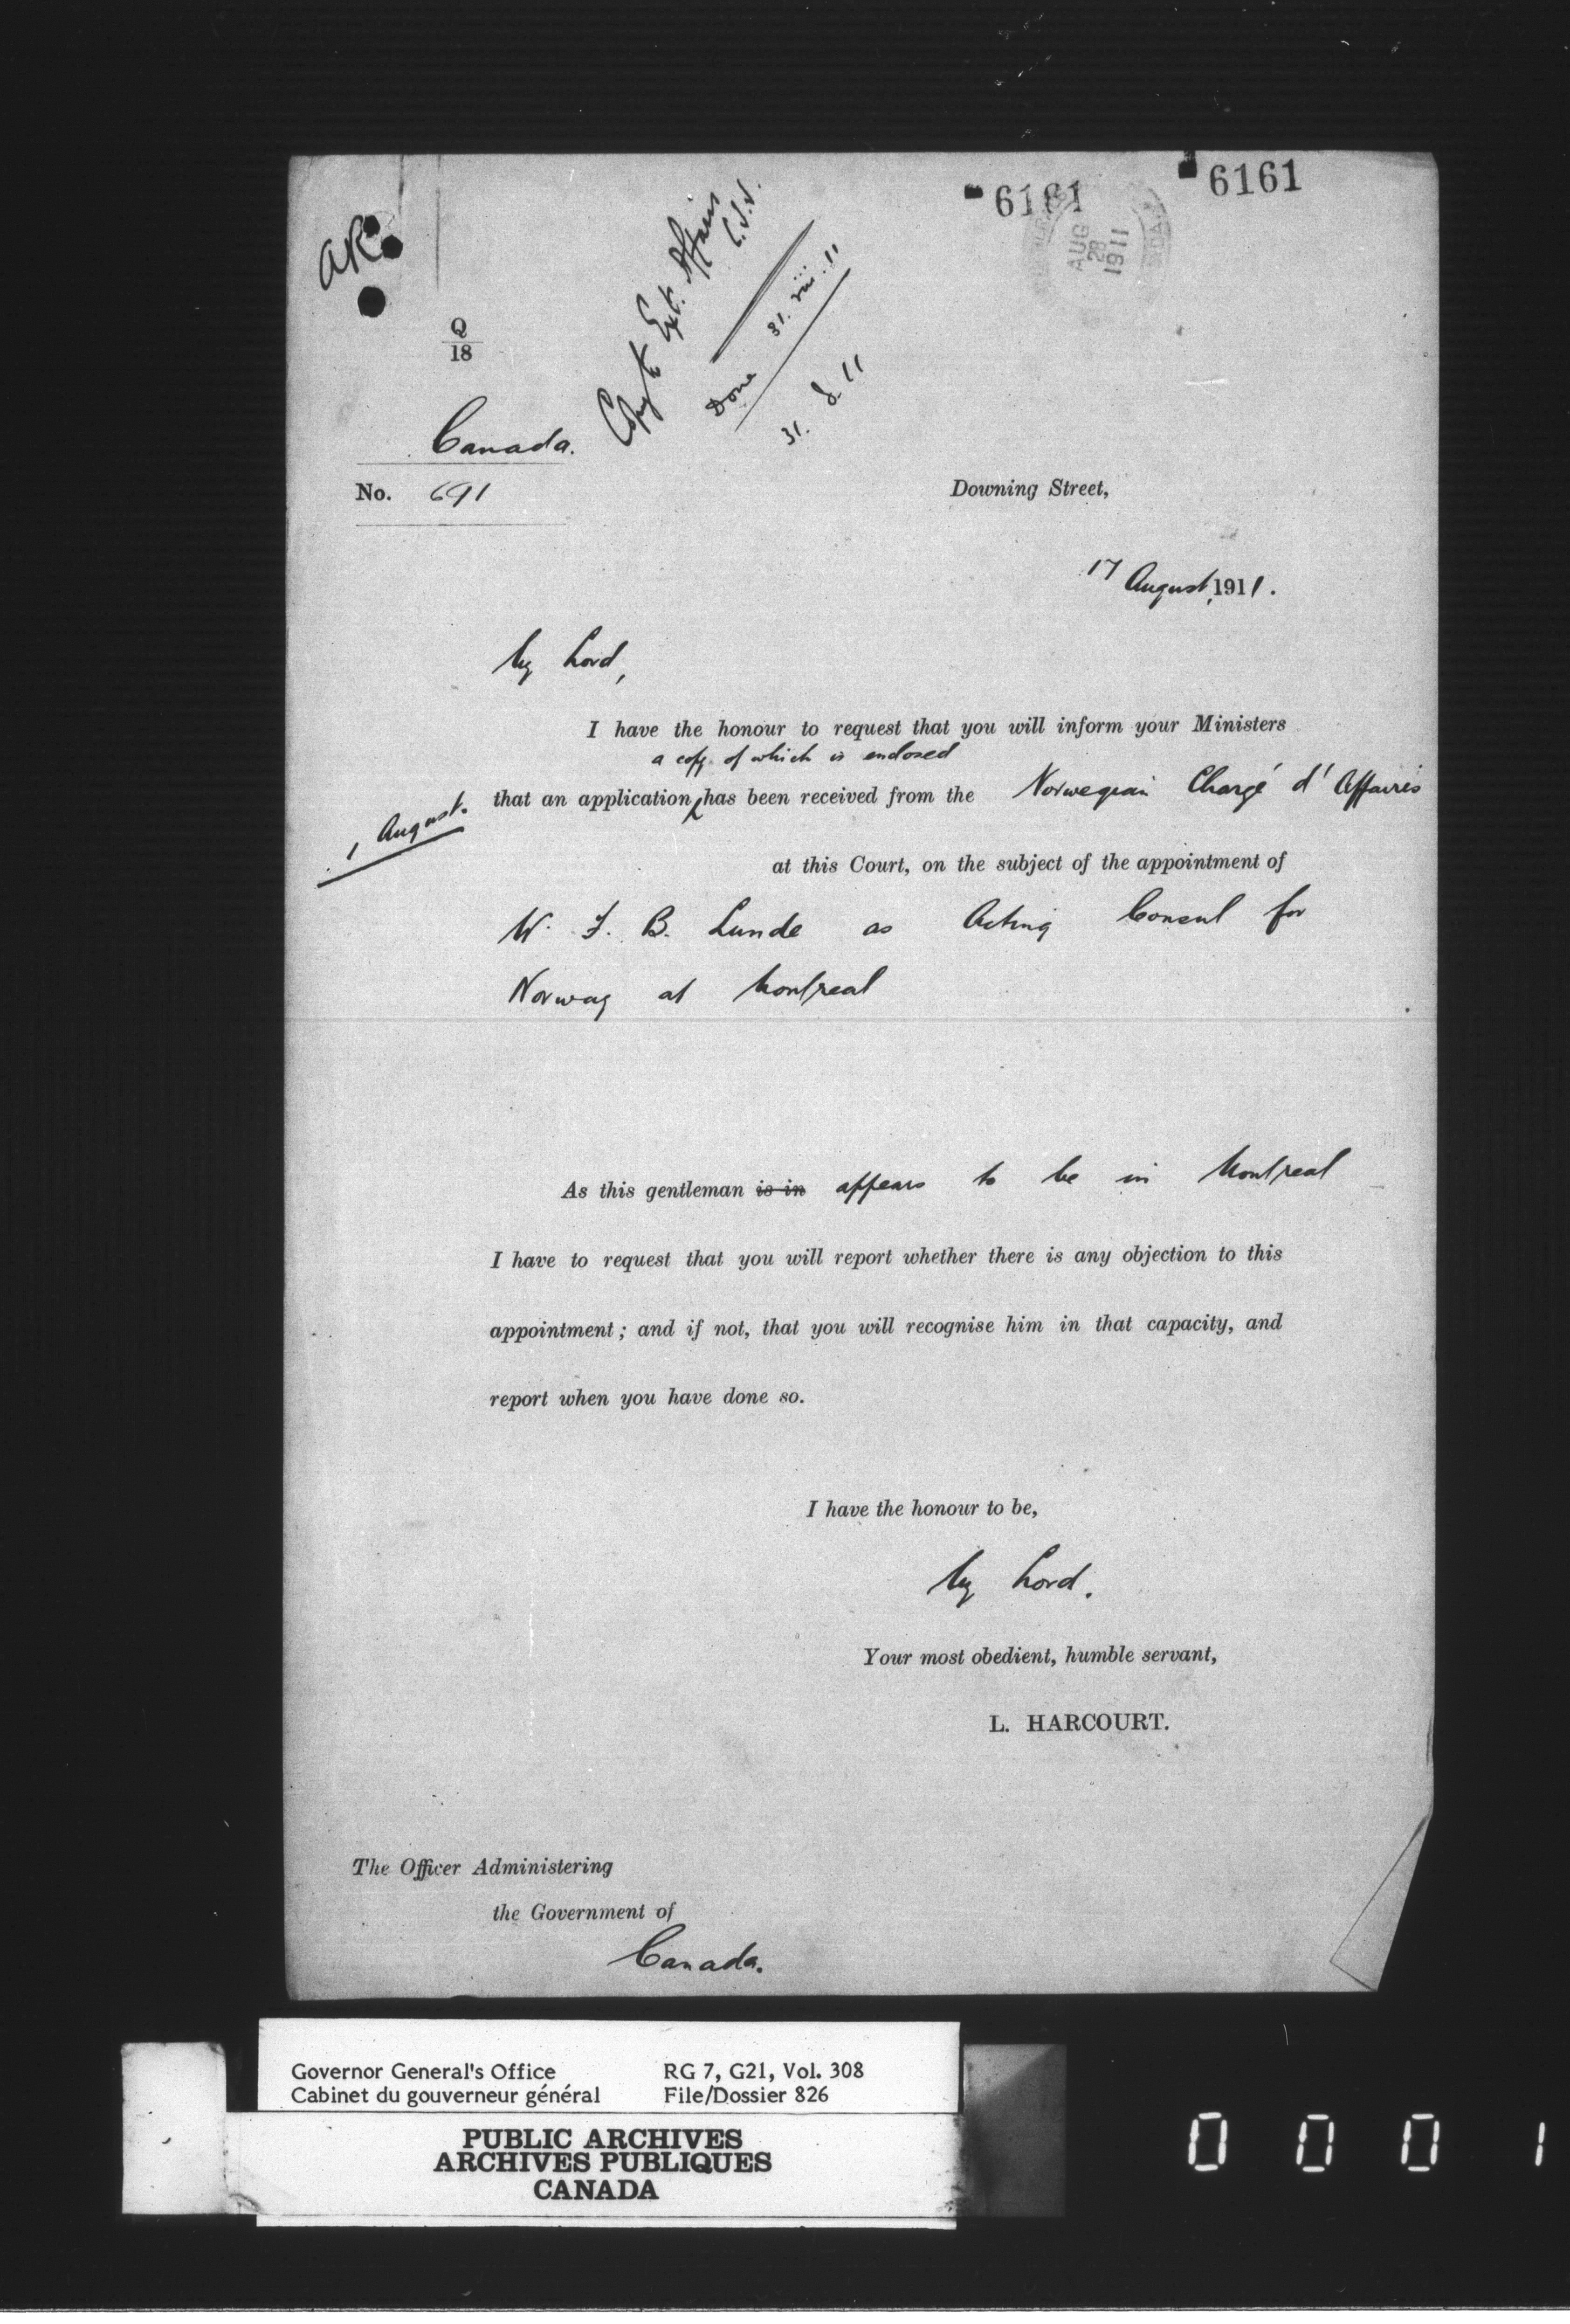 6161
6161
AUG
28
1911
Copy to Ext. Affairs
Done 31. viii. 11
31. 8. 11
Q
18
Canada.
No. 691
Downing Street,
17 August, 1911.
My Lord,
I have the honour to request that you will inform your Ministers
a copy of which is enclosed
that an application has been received from the Norwegian Chargé d'Affaires
1 August.
at this Court, on the subject of the appointment of
W. F. B. Lunde as Acting Consul for
Norway at Montreal
As this gentleman is in appears to be in Montreal
I have to request that you will report whether there is any objection to this
appointment; and if not, that you will recognise him in that capacity, and
report when you have done so.
I have the honour to be,
My Lord.
Your most obedient, humble servant,
L. HARCOURT.
The Officer Administering
the Government of
Canada.
Governor General's Office RG 7, G21, Vol. 308
Cabinet du gouverneur général File/Dossier 826
PUBLIC ARCHIVES
ARCHIVES PUBLIQUES
CANADA
0 0 0 1